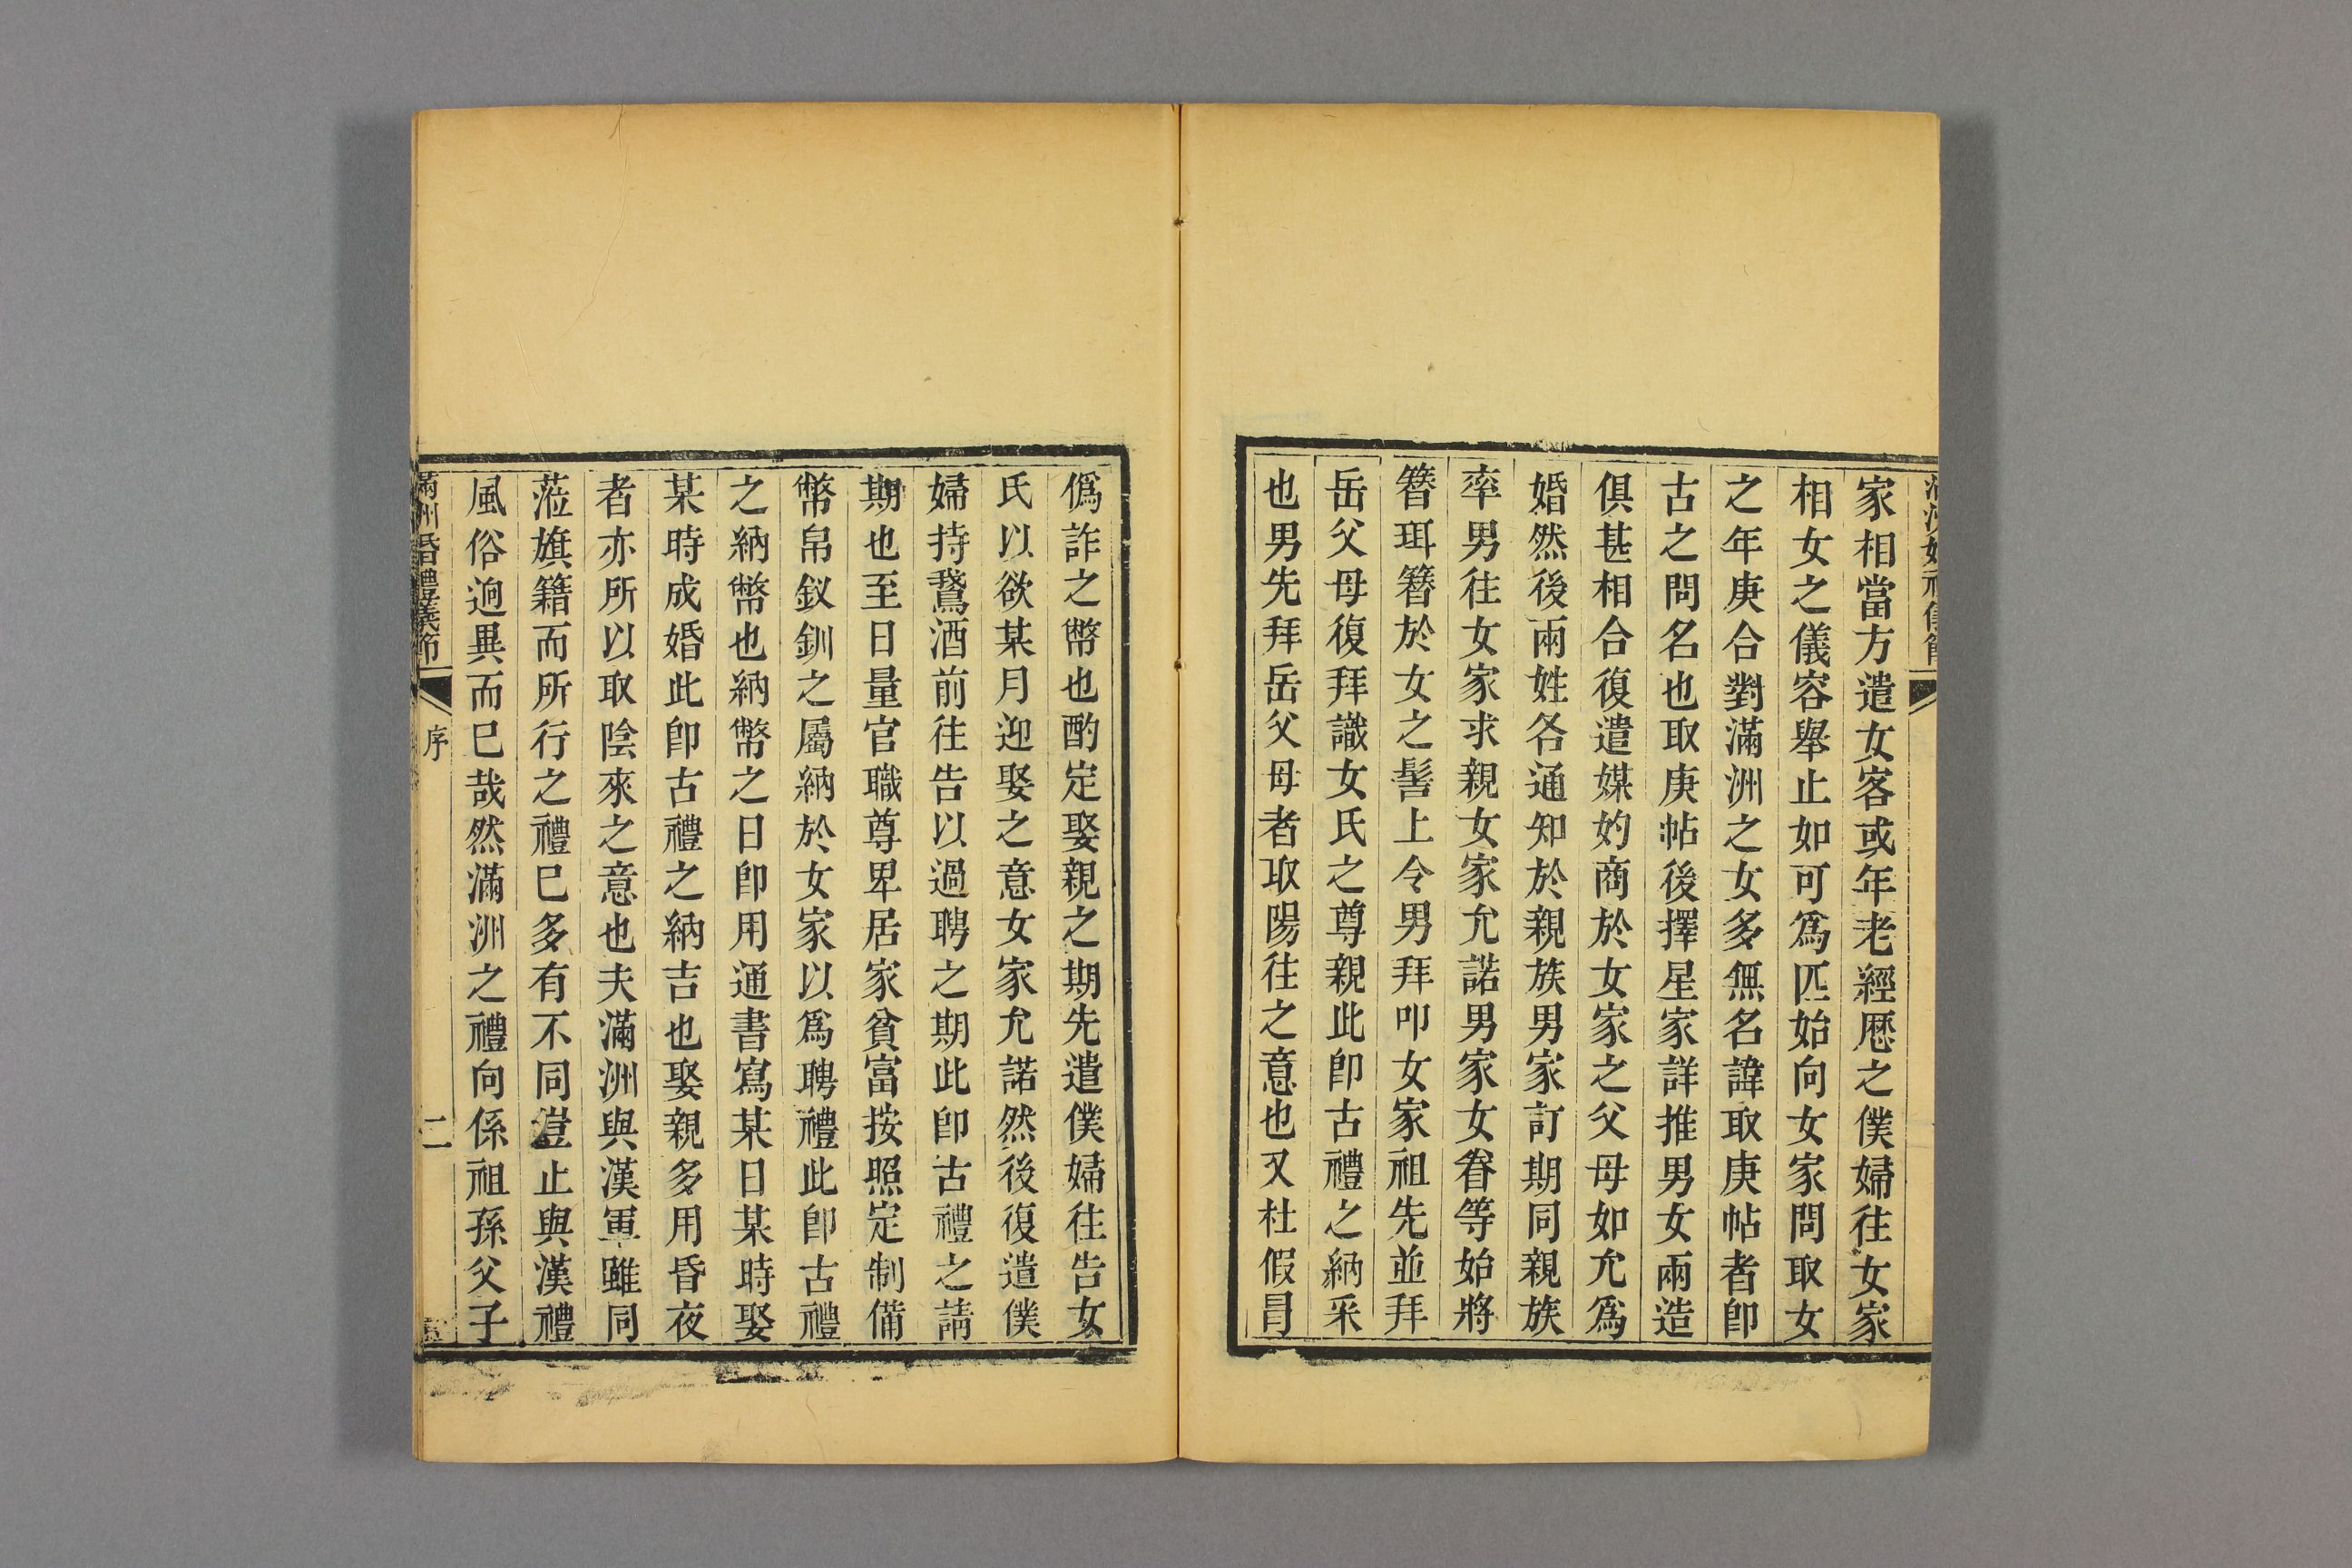 家相當方遣女客或年老經歷之僕婦往女家
相女之儀容舉止如可爲匹始向女家問取女
之年庚合對滿洲之女多無名諱取庚帖者卽
古之問名也取庚帖後擇星家詳推男女兩造
俱甚相合復遣媒妁商於女家之父母如允爲
婚然後兩姓各通知於親族男家訂期同親族
率男往女家求親女家允諾男家女眷等始將
簪珥簪於女之髻上令男拜叩女家祖先並拜
岳父母復拜識女氏之尊親此卽古禮之納采
也男先拜岳父母者取陽往之意也又杜假冒
僞詐之幣也酌定娶親之期先遣僕婦往告女
氏以欲某月迎娶之意女家允諾然後復遣僕
婦持鵞酒前往告以過聘之期此卽古禮之請
期也至日量官職尊卑居家貧富按照定制備
幣帛釵釧之屬納於女家以爲聘禮此卽古禮
之納幣也納幣之日卽用通書寫某日某時娶
某時成婚此卽古禮之納吉也娶親多用昏夜
者亦所以取陰來之意也夫滿洲與漢軍雖同
蒞旗籍而所行之禮已多有不同豈止與漢禮
風俗迥異而已哉然滿洲之禮向係祖孫父子
滿洲婚禮儀節
序
二